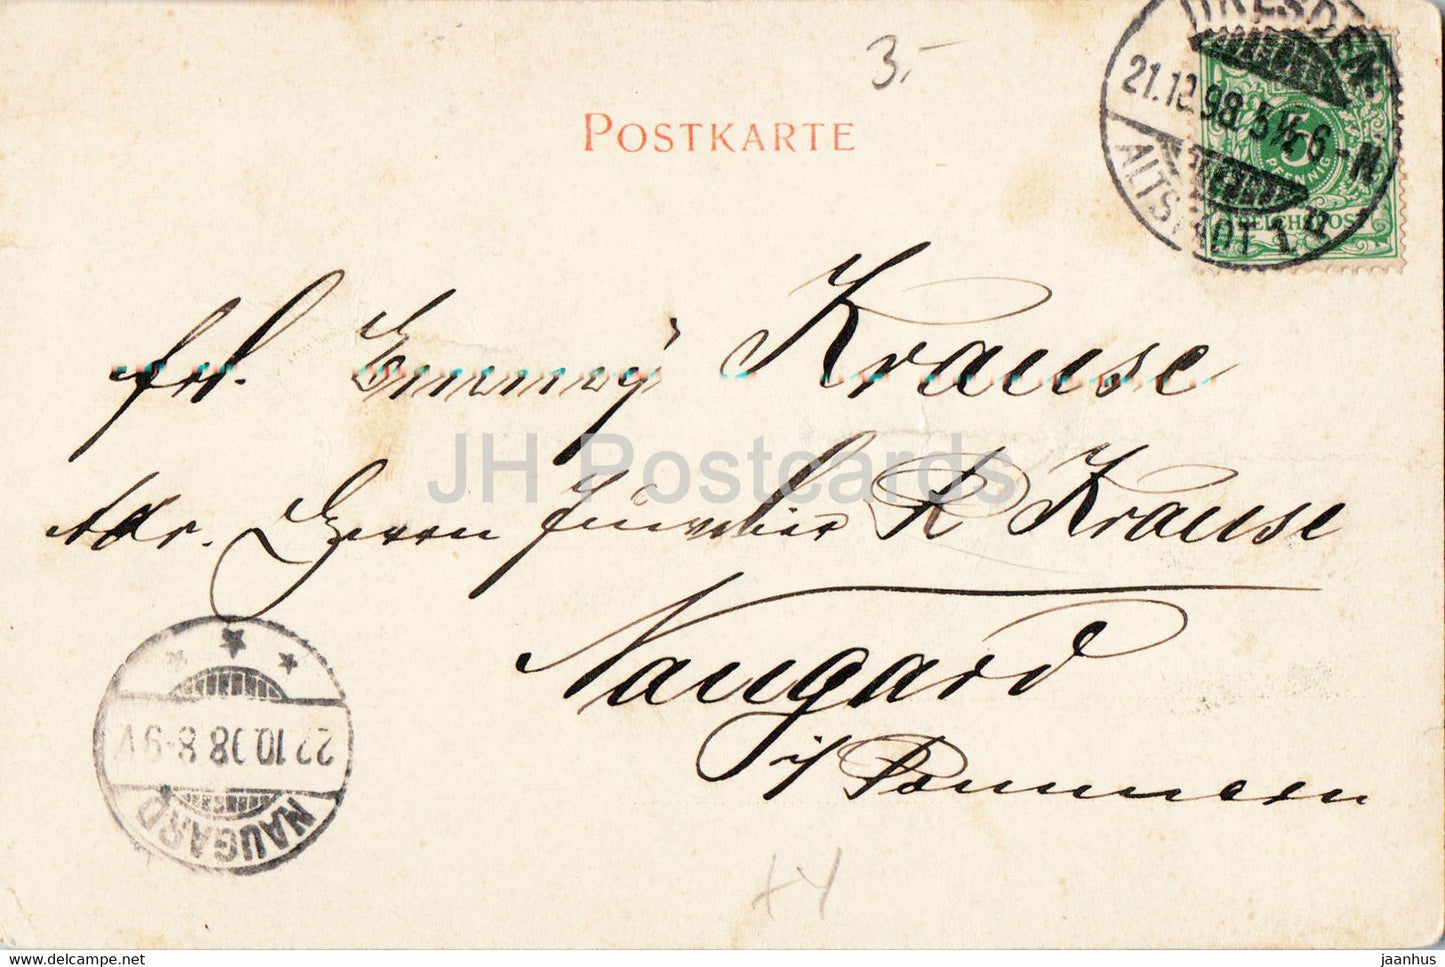 3.-
POSTKARTE
DRESDEN
21.12.98. 5½-6-N.
ALTSTADT 1.
5
PFENNIG
REICHSPOST
Frl. Emmy Krause
Adr. Herrn Juwelier R Krause
Naugard
i/ Pommern
22 10 98 8-9 V
NAUGARD
x4
JH Postcards
www.delcampe.net
jaanhus